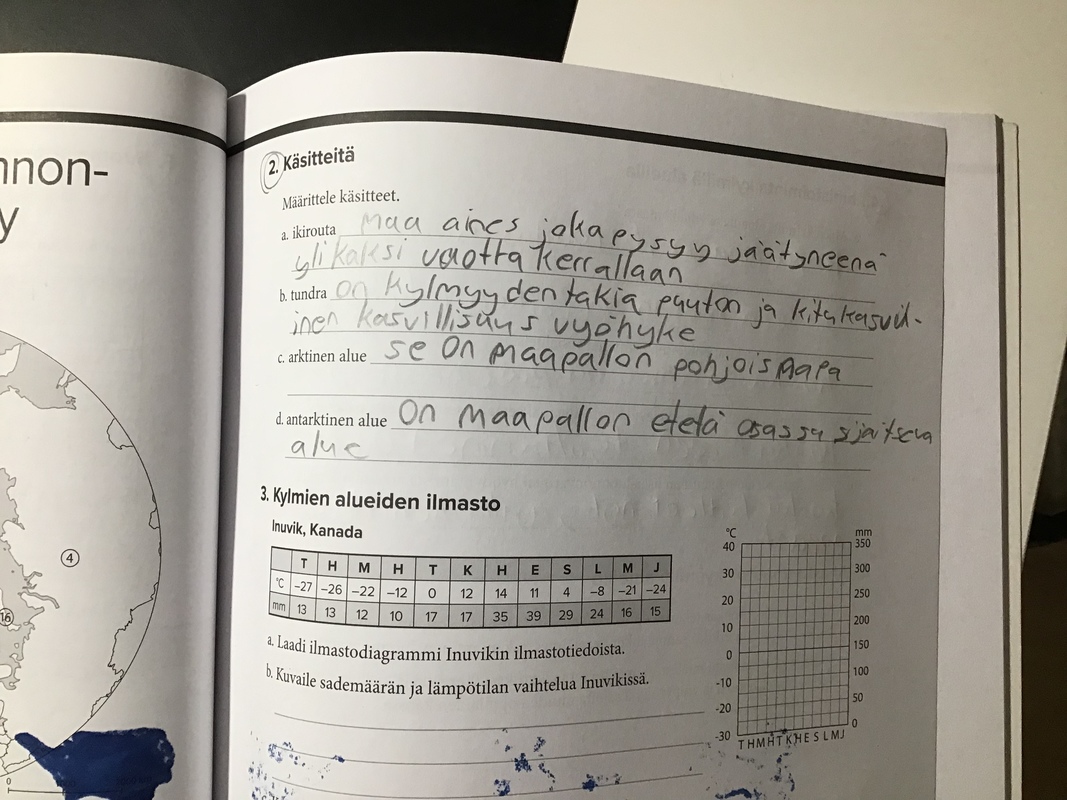 nnon-
y
4
16
0
2. Käsitteitä
Määrittele käsitteet.
a. ikirouta maa aines joka pysyy jäätyneenä
yli kaksi vuotta kerrallaan
b. tundra on kylmyyden takia puuton ja kitukasvil-
inen kasvillisuus vyöhyke
c. arktinen alue se on maapallon pohjoisnapa
d. antarktinen alue on maapallon etelä osassa sijaitseva
alue
3. Kylmien alueiden ilmasto
Inuvik, Kanada
T H M H T K H E S L M J
°C −27 −26 −22 −12 0 12 14 11 4 −8 −21 −24
mm 13 13 12 10 17 17 35 39 29 24 16 15
a. Laadi ilmastodiagrammi Inuvikin ilmastotiedoista.
b. Kuvaile sademäärän ja lämpötilan vaihtelua Inuvikissä.
°C mm
40 350
30 300
20 250
10 200
0 150
-10 100
-20 50
-30 0
T H M H T K H E S L M J